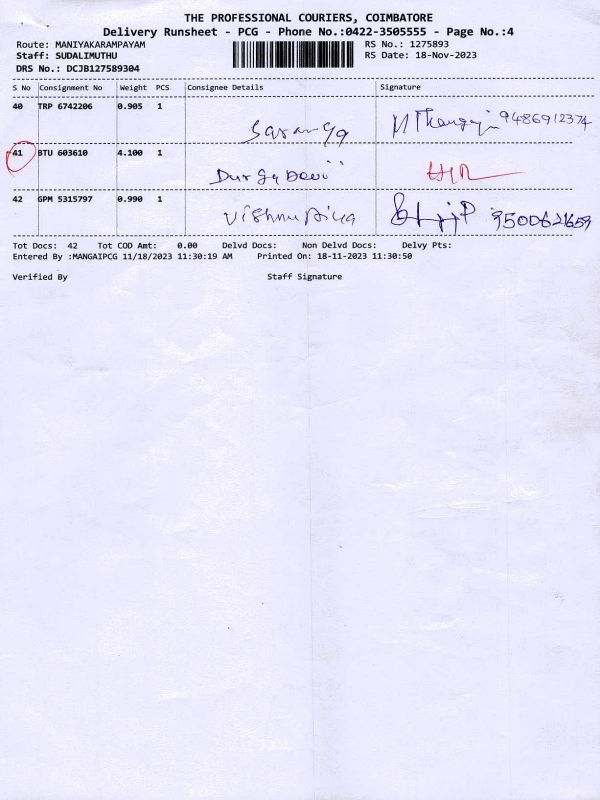 THE PROFESSIONAL COURIERS, COIMBATORE
Delivery Runsheet - PCG - Phone No.:0422-3505555 - Page No.:4
Route: MANIYAKARAMPAYAM RS No.: 1275893
Staff: SUDALIMUTHU RS Date: 18-Nov-2023
DRS No.: DCJB127589304
S No Consignment No Weight PCS Consignee Details Signature
40 TRP 6742206 0.905 1
Saranga 9486912374
41 BTU 603610 4.100 1
Durga Devi
42 GPM 5315797 0.990 1
Vishnu Priya 9500621659
Tot Docs: 42 Tot COD Amt: 0.00 Delvd Docs: Non Delvd Docs: Delvy Pts:
Entered By :MANGAIPCG 11/18/2023 11:30:19 AM Printed On: 18-11-2023 11:30:50
Verified By Staff Signature